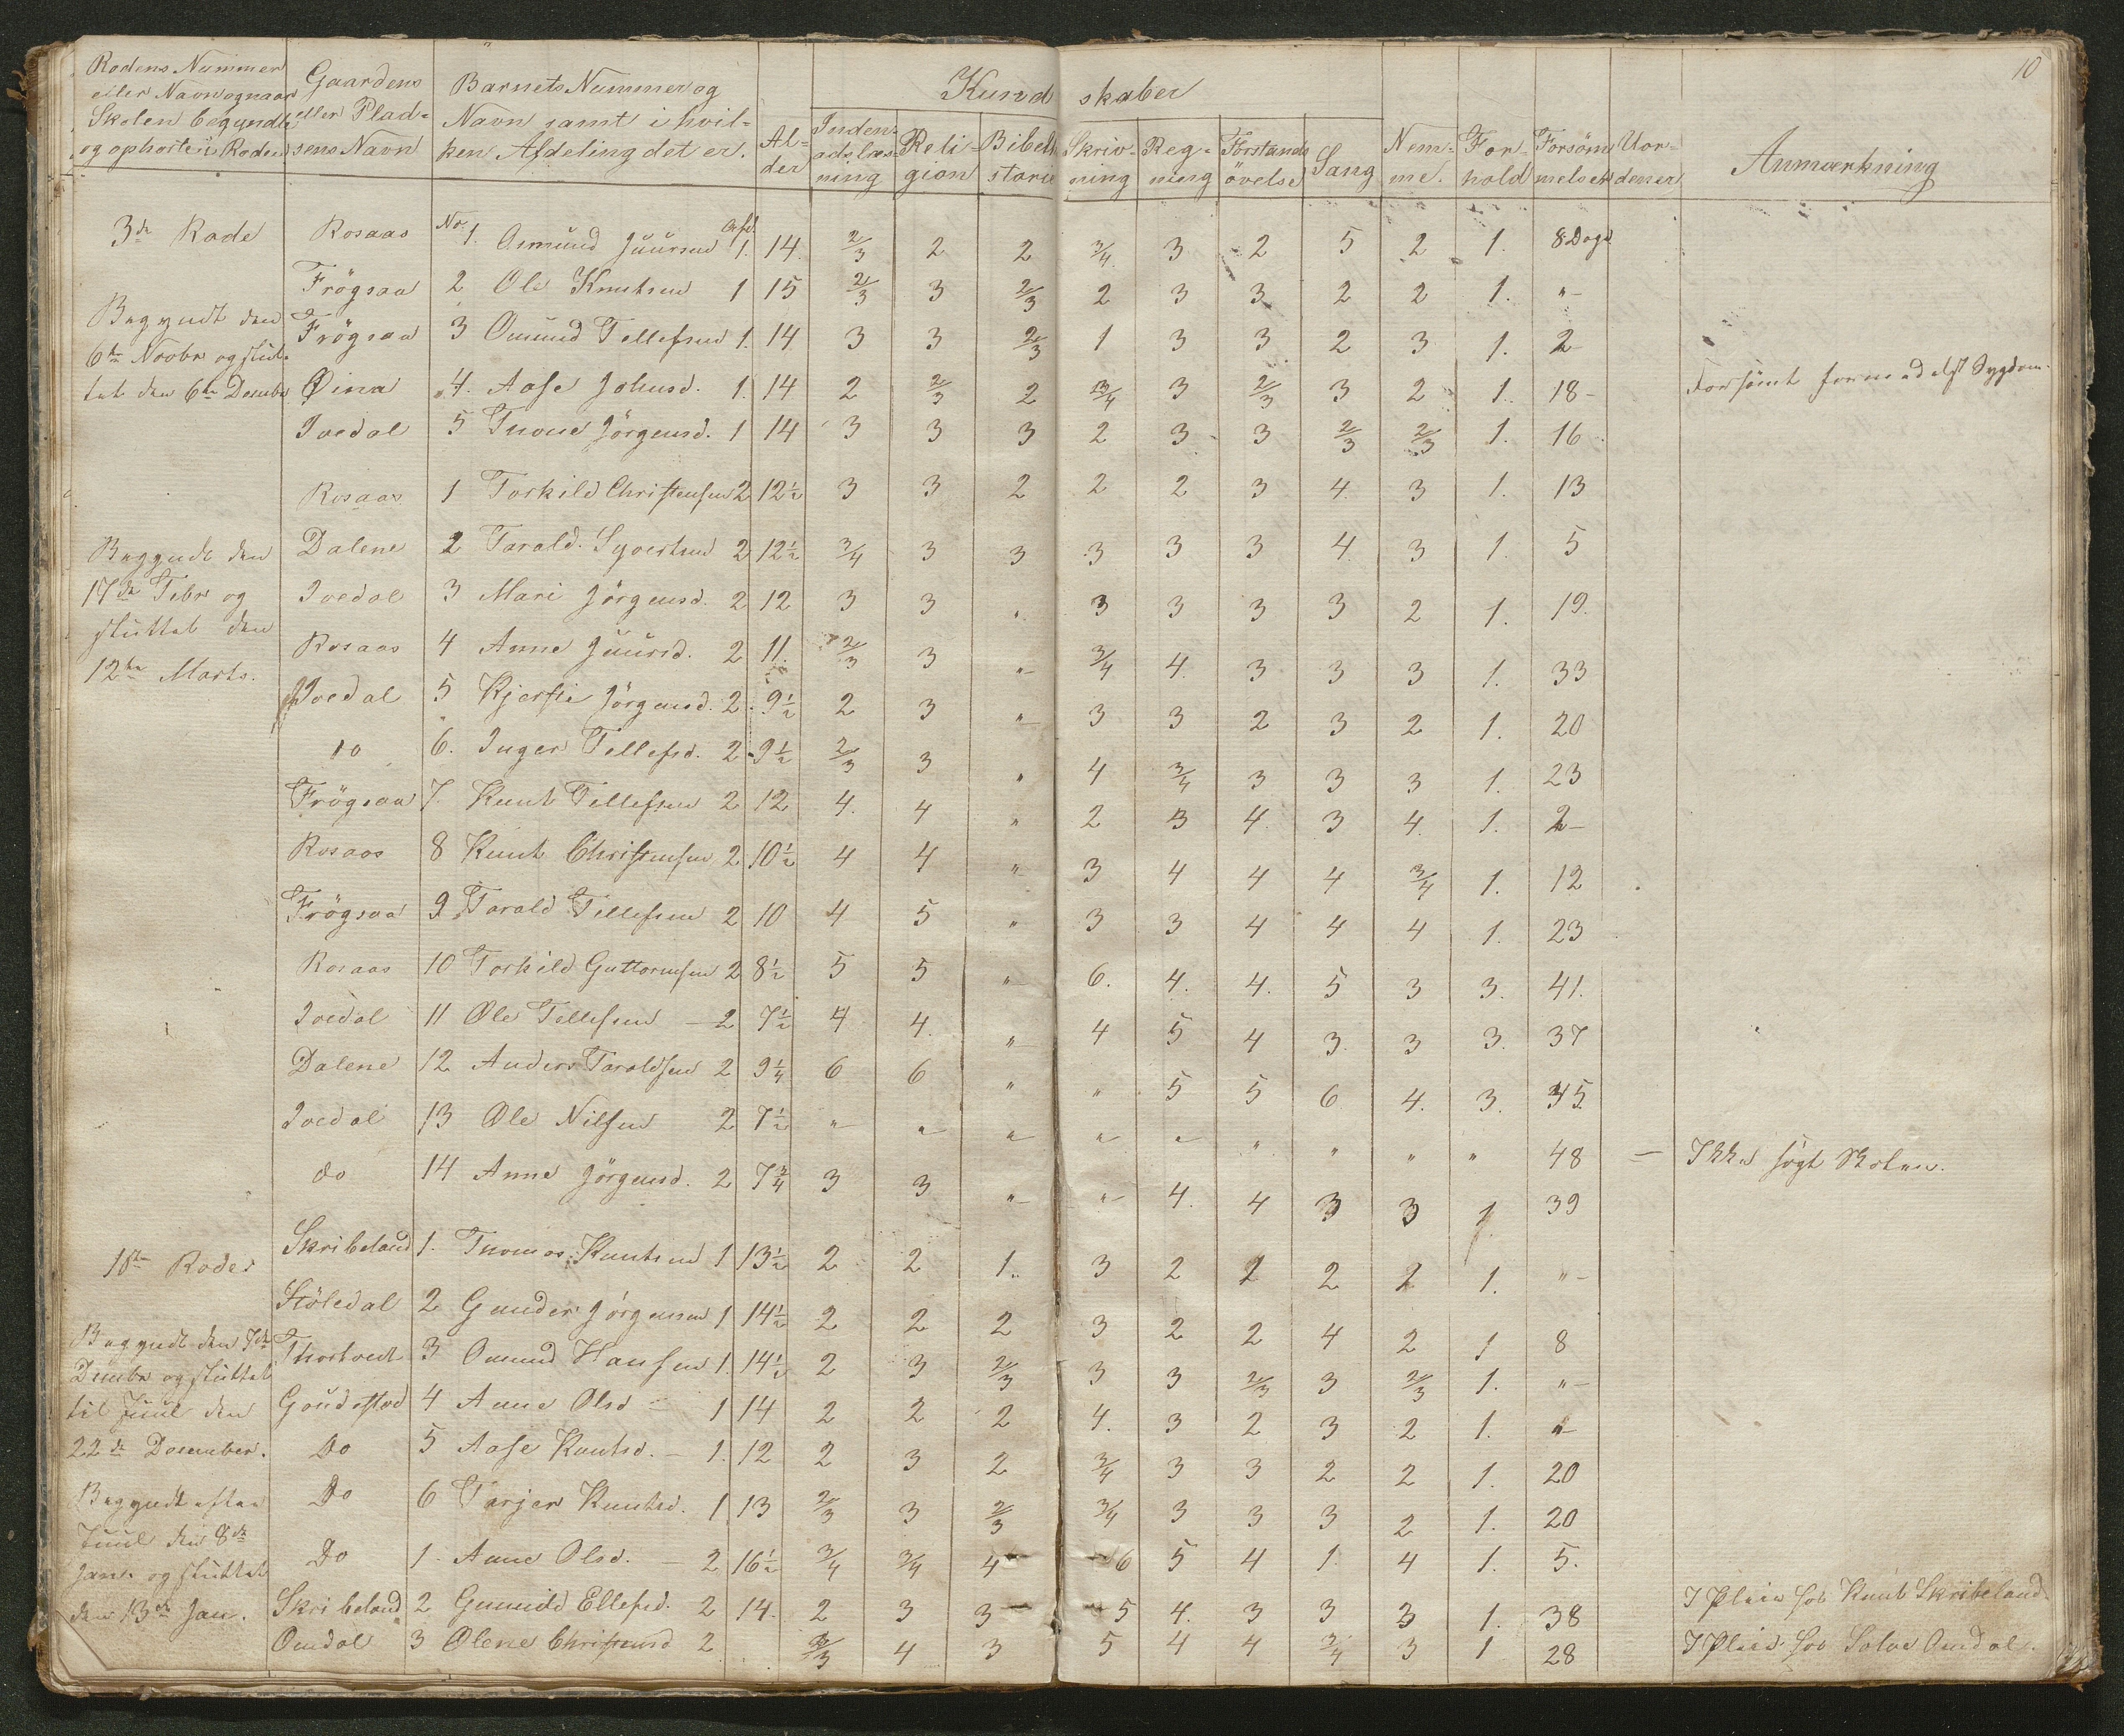 10
Rodens Nummer eller Navn og naar Skolen begyndte og ophørte i Roden | Gaardens eller Pladsens Navn | Barnets Nummer og Navn samt i hvilken Afdeling det er. | Alder | Kundskaber | Indenadslæsning | Religion | Bibelstorie | Skrivning | Regning | Forstandsövelse | Sang | Nemme. | Forhold | Forsömmelser | Uordener | Anmærkning
3de Rode | Rosaas | No 1. Osmund Juursen Afd. 1. | 14. | 2/3 | 2 | 2 | 3/4. | 3 | 2 | 5 | 2 | 1. | 8 Dage
Frögsaa | 2 Ole Knutsen 1 | 15 | 2/3 | 3 | 2/3 | 2 | 3 | 3 | 2 | 2 | 1. | "-
Begyndt den
Frögsaa | 3 Omund Tellefsen 1. | 14 | 3 | 3 | 2/3 | 1 | 3 | 3 | 2 | 3 | 1. | 2-
6te Novbr og slut-
tet den 6te Decembr | Øina | 4. Aase Johnsd. 1. | 14 | 2 | 2/3 | 2 | 3/4 | 3 | 2/3 | 3 | 2 | 1. | 18- | Forsömt formedelst Sygdom.
Ivedal | 5 Tnone Jörgensd. 1 | 14 | 3 | 3 | 3 | 2 | 3 | 3 | 2/3 | 2/3 | 1. | 16
Rosaas | 1 Torkild Christensen 2 | 12½ | 3 | 3 | 2 | 2 | 2 | 3 | 4. | 3 | 1. | 13
Begyndt den | Dalene | 2 Tarald Syvertsen 2 | 12½ | 3/4 | 3 | 3 | 3 | 3 | 3 | 4 | 3 | 1. | 5
17de Febr og | Ivedal | 3 Mari Jörgensd. 2 | 12 | 3 | 3 | " | 3 | 3 | 3 | 3 | 2 | 1. | 19.
sluttet den
Rosaas | 4 Anne Juursd. 2 | 11. | 2/3 | 3 | "- | 3/4 | 4. | 3 | 3 | 3 | 1. | 33
12te Marts.
Ivedal | 5 Kjerstie Jörgensd. 2 | 9½ | 2 | 3 | "- | 3 | 3 | 2 | 3 | 2 | 1. | 20
Do | 6. Inger Tellefsd. 2 | 9½ | 2/3 | 3 | " | 4 | 3/4 | 3 | 3 | 3 | 1. | 23
Frögsaa | 7. Knut Tellefsen 2 | 12 | 4. | 4 | " | 2 | 3 | 4. | 3 | 4. | 1. | 2-
Rosaas | 8 Knut Christensen 2 | 10½ | 4 | 4 | "- | 3 | 4 | 4 | 4 | 3/4 | 1. | 12
Frögsaa | 9 Tarald Tellefsen 2 | 10 | 4 | 5 | " | 3 | 3 | 4 | 4 | 4 | 1. | 23
Rosaas | 10 Torkild Guttormsen 2 | 8½ | 5 | 5 | "- | 6. | 4. | 4. | 5 | 3 | 3. | 41.
Ivedal | 11 Ole Tellefsen - 2 | 7½ | 4 | 4. | "- | 4 | 5 | 4 | 3. | 3 | 3. | 37
Dalene | 12 Anders Taraldsen 2 | 9¼ | 6 | 6 | " | " | 5 | 5 | 6 | 4. | 3. | 45
Ivedal | 13 Ole Nilsen 2 | 7½ | "- | "- | "- | "- | "- | " | " | " | " | 48 | - | Ikke sögt Skolen.
do | 14 Anne Jörgensd. 2 | 7¾ | 3 | 3 | "- | "- | 4. | 4 | 3 | 3 | 1. | 39
1ste Rode | Skribeland | 1. Thomas Knutsen 1 | 13½ | 2 | 2 | 1. | 3 | 2 | 2 | 2 | 2 | 1. | "-
Stöledal | 2 Gunder Jörgensen 1 | 14½ | 2 | 2 | 2 | 3 | 2 | 2 | 4 | 2 | 1 | 8
Begyndt den 7de | Thortvedt | 3 Omund Hansen 1. | 14½ | 2 | 3 | 2/3 | 3 | 3 | 2/3 | 3 | 2/3 | 1. | "-
Decmbr og sluttet
til Juul den | Goudestad | 4 Anne Olsd - 1 | 14 | 2 | 2 | 2 | 4. | 3 | 2 | 3 | 2 | 1. | "-
22de December. | Do | 5 Aase Knutsd. - 1. | 12 | 2 | 3 | 2 | 3/4 | 3 | 3 | 2 | 2 | 1. | 20
Begyndt efter | Do | 6 Tarjer Knutsd. 1 | 13 | 2/3 | 3 | 2/3 | 3/4 | 3 | 3 | 3 | 2 | 1. | 20
Juul den 8de
Janr. og sluttet | Do | 1. Anne Olsd. - 2 | 16½ | 3/4 | 3/4 | 4 | 6 | 5 | 4 | 1. | 4 | 1. | 5.
den 13de Jan. | Skribeland | 2 Gunnild Ellefsd. 2 | 14. | 2 | 3 | 3 | 5 | 4. | 3 | 3 | 3 | 1. | 38 | I Pleie hos Knut Skribeland
Omdal | 3 Olene Christensd 2 | 2/3 | 4 | 3 | 5 | 4 | 4 | 3/4 | 3 | 1 | 28 | I Pleie hos Salve Omdal.